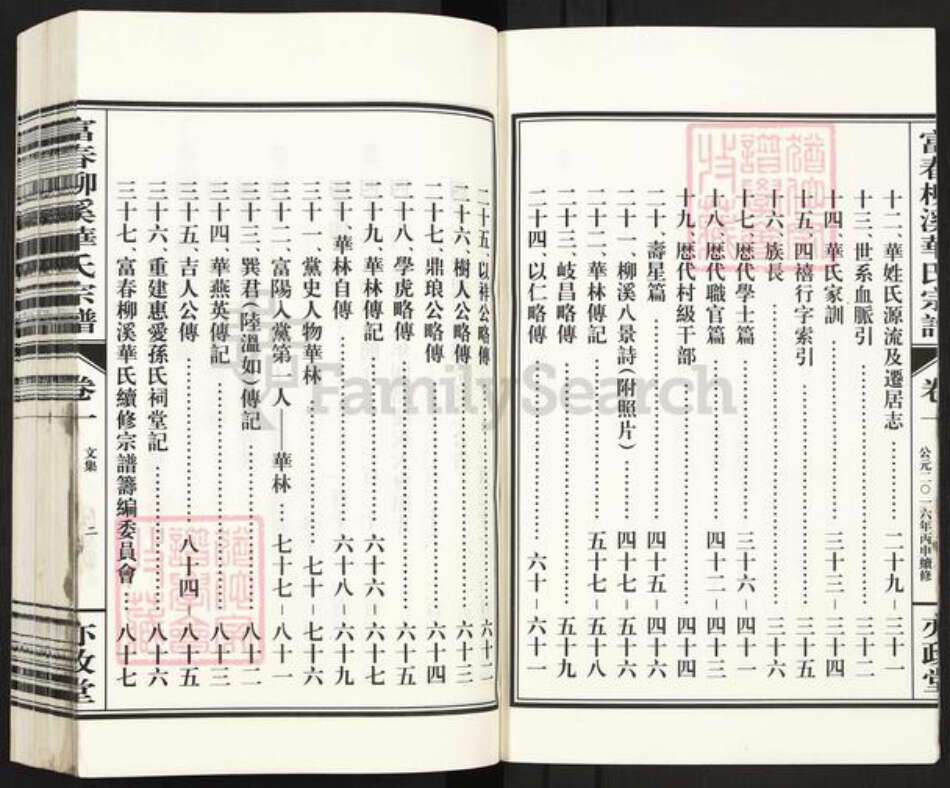 富春柳溪華氏宗譜
卷一
公元二〇一六年丙申續修
亦政堂
十二、華姓氏源流及遷居志……二十九－三十一
十三、世系血脈引……三十二
十四、華氏家訓……三十三－三十四
十五、四禧行字索引……三十五
十六、族長……三十六
十七、歷代學士篇……三十六－四十一
十八、歷代職官篇……四十二－四十三
十九、歷代村級干部……四十四
二十、壽星篇……四十五－四十六
二十一、柳溪八景詩(附照片)……四十七－五十六
二十二、華林傳記……五十七－五十八
二十三、岐昌略傳……五十九
二十四、以仁略傳……六十－六十一
二十五、以祥公略傳……六十二
二十六、樹人公略傳……六十三
二十七、鼎琅公略傳……六十四
二十八、學虎略傳……六十五
二十九、華林傳記……六十六－六十七
三十、華林自傳……六十八－六十九
三十一、黨史人物華林……七十－七十六
三十二、富陽入黨第一人——華林……七十七－八十一
三十三、巽君(陸溫如)傳記……八十二
三十四、華燕英傳記……八十三
三十五、吉人公傳……八十四－八十五
三十六、重建惠愛孫氏祠堂記……八十六
三十七、富春柳溪華氏續修宗譜籌編委員會……八十七
富春柳溪華氏宗譜
卷一
文集
二
亦政堂
FamilySearch